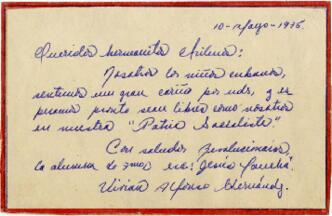 10-Mayo-1975.
Queridos hermanitos chilenos:
Nosotros los niños cubanos,
sentimos un gran cariño por uds, y es
peramos pronto sean libres como nosotros
en nuestra "Patria Socialista".
Con saludos Revolucionarios
la alumna de 2do esc: Jesús
Vivian Alfonso Hernández.